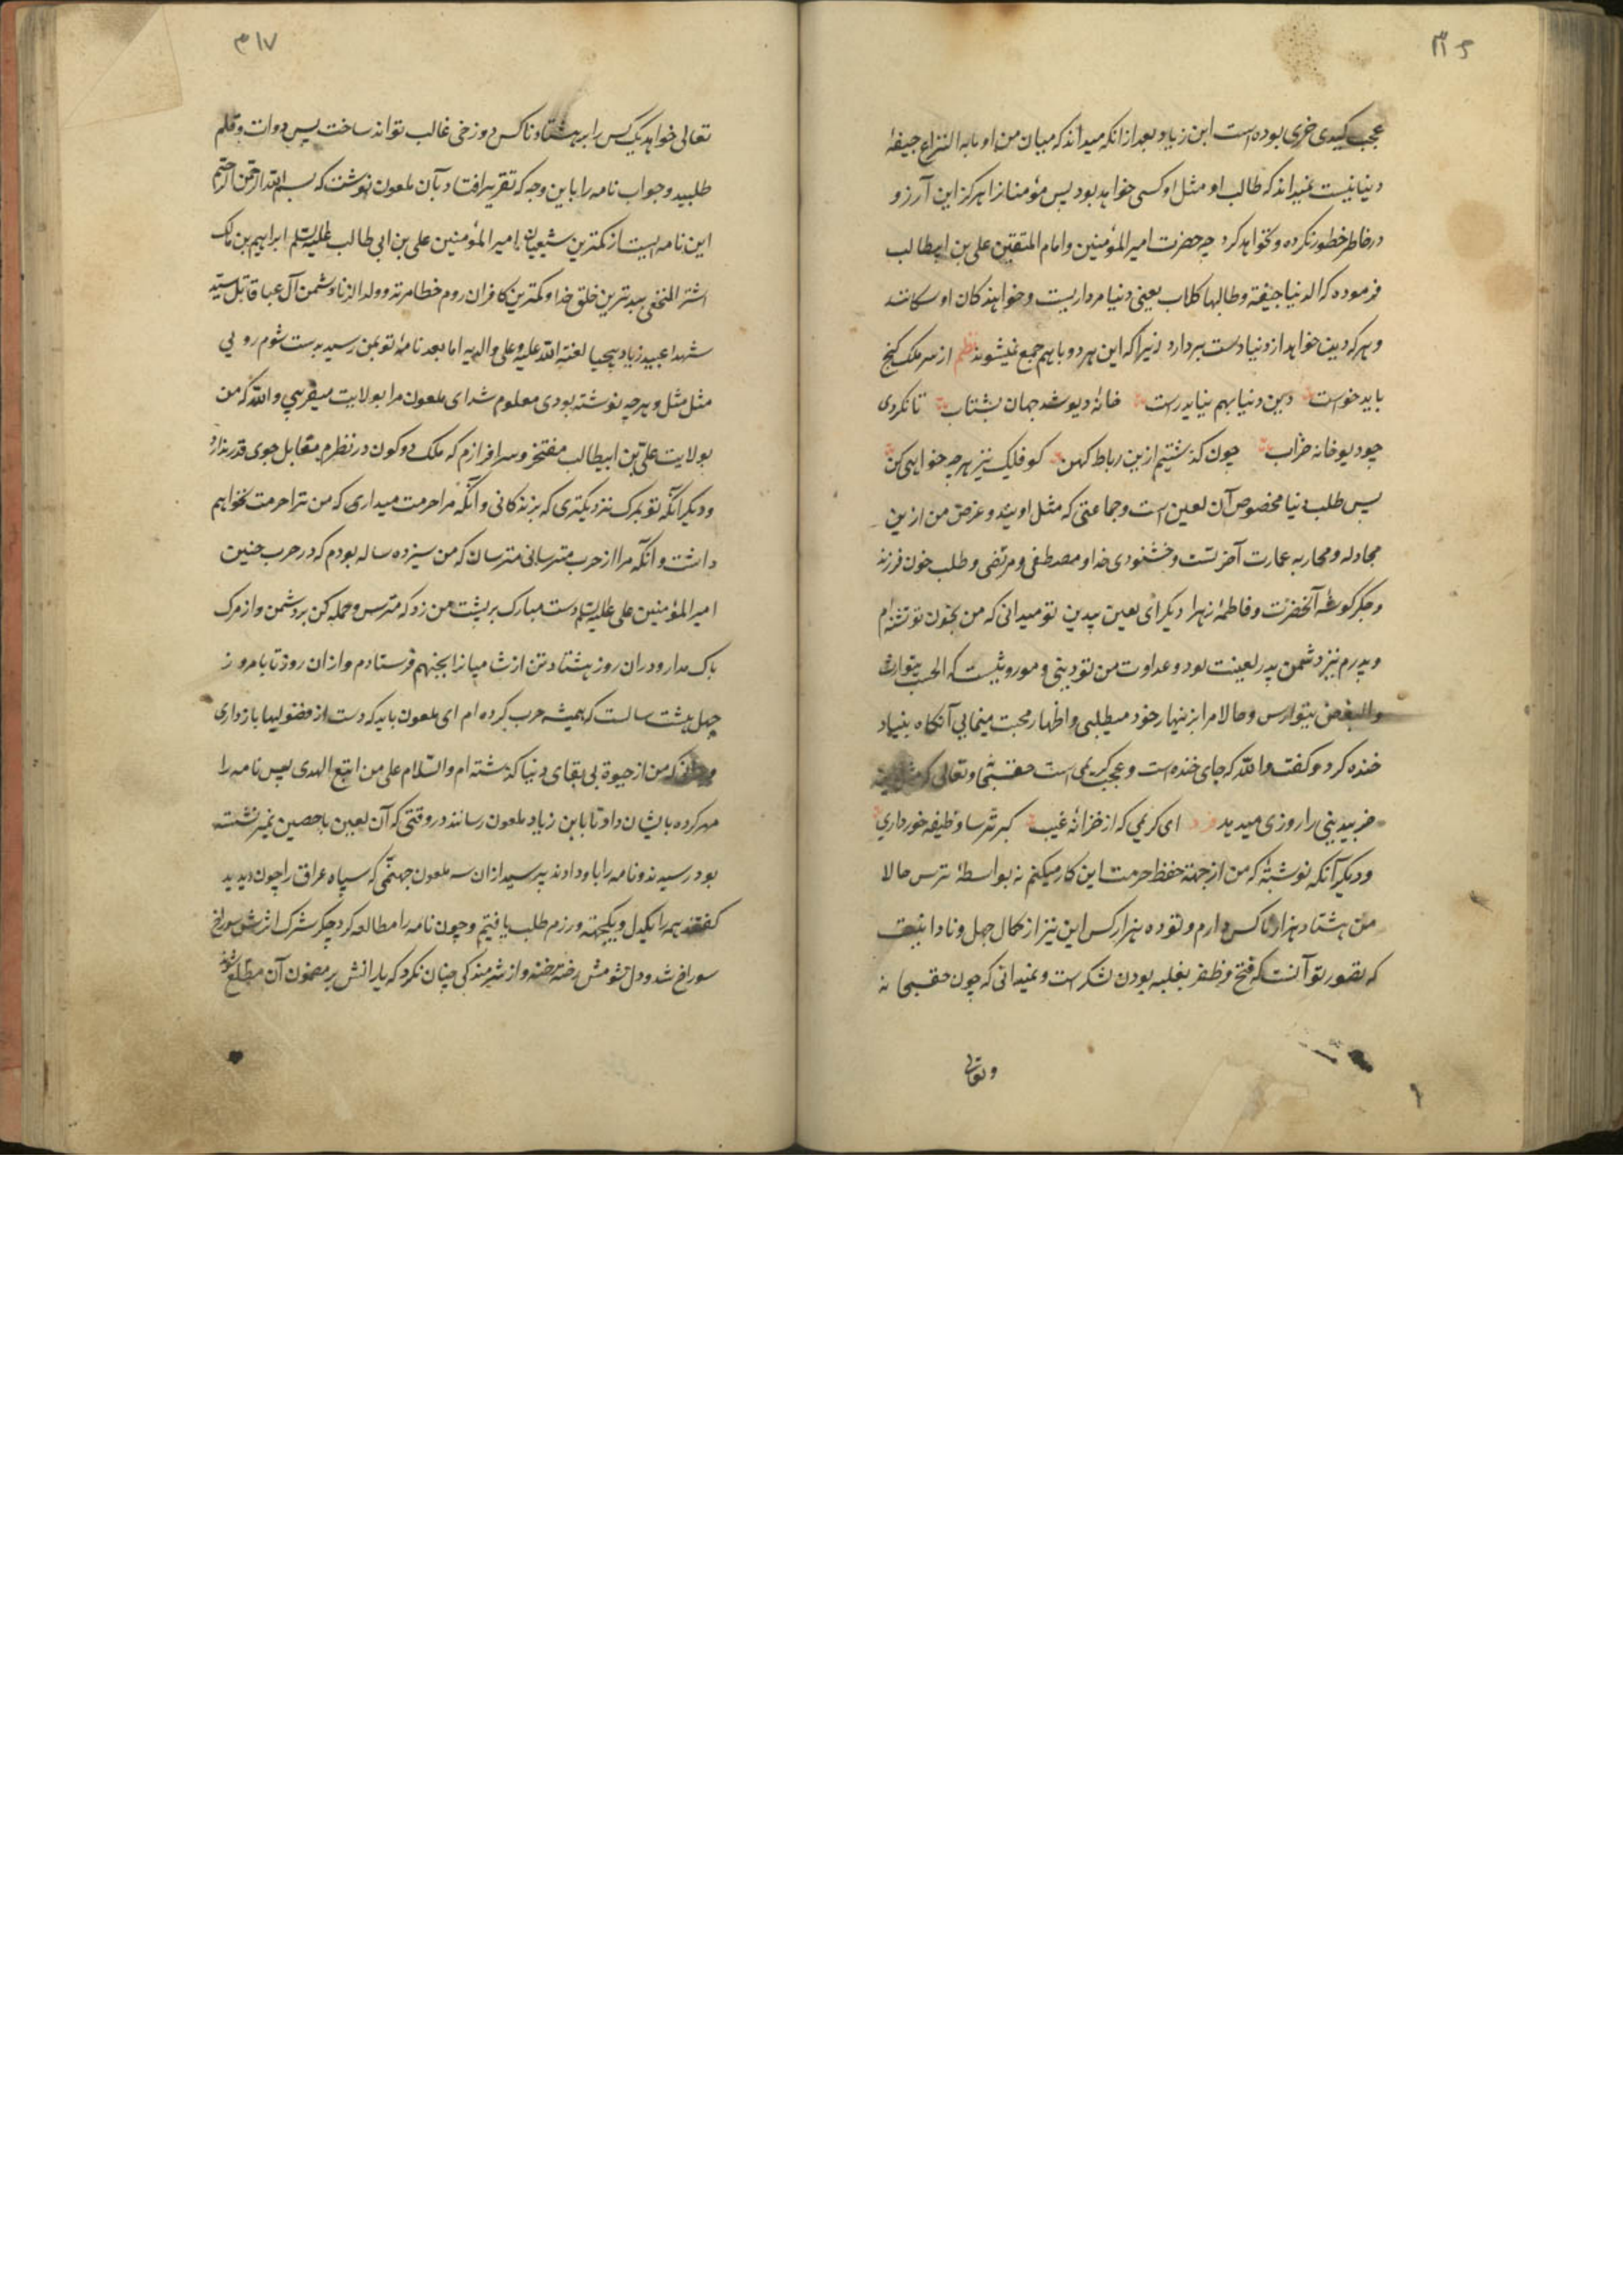 ۳۱۶
عجب کیدی خری بوده است ابن زیاد و بعد از انکه میداند که میان من و او ما به النزاع جیفهٔ
دنیا نیست نمیداند که طالب او مثل او کسی خواهد بود پس مؤمنانرا هرکز این آرزو
در خاطر خطور نکرده و نخواهد کرد چه حضرت امیر المؤمنین و امام المتقین علی بن ابیطالب
فرموده که الدنیا جیفة و طالبها کلاب یعنی دنیا مرداریست و خواهندکان او سکانند
و هر که دین خواهد از دنیا دست بردارد زیرا که این هر دو با هم جمع نمیشوند نظم از سر ملک کنج
باید خواست دین و دنیا بهم نیاید راست خانهٔ دیو شد جهان بشتاب تا نکردی
چو دیو خانه خراب چون کذشتیم ازین رباط کهن کو فلک نیز هر چه خواهی کن
پس طلب دنیا مخصوص آن لعین است و جماعتی که مثل اویند و غرض من ازین
مجادله و محاربه عمارت آخرتست و خشنودی خدا و مصطفی و مرتضی و طلب خون فرزند
و جکر کوشهٔ آنحضرت و فاطمهٔ زهرا دیکر ای لعین بیدین تو میدانی که من بخون تو تشنه ام
و پدرم نیز دشمن پدر لعینت بود و عداوت من تو دینی و موروثیست که الحب یتوارث
والبغض یتوارس و حالا مرا بزینهار خود میطلبی و اظهار محبت مینمایی آنکاه بنیاد
خنده کرد و کفت والله که جای خنده است و عجب کریمی است حقسبحانه و تعالی که مثل این
خر بیدینی را روزی میدهد فرد ای کریمی که از خزانهٔ غیب کبر ترسا وظیفه خور داری
و دیکر آنکه نوشتهٔ که من از جهة حفظ حرمت این کار میکنم نه بواسطهٔ ترس حالا
من هشتاد هزار ناکس دارم و تو ده هزار کس این نیز از کمال جهل و نادانیست
که تصور تو آنست که فتح و ظفر بغلبه بودن لشکر است و نمیدانی که چون حقسبحانه
و تعالی
۳۱۷
تعالی خواهد یک کس را بر هشتاد ناکس دوزخی غالب تواند ساخت پس دوات و قلم
طلبید و جواب نامه را باین وجه که تقریر افتاد بآن ملعون نوشت که بسم الله الرحمن الرحیم
این نامه ایست از کمترین شیعیان امیر المؤمنین علی بن ابی طالب علیه السلم ابراهیم بن مالک
اشتر النخعی ببدترین خلق خدا و کمترین کافران روم خطا مرتد و ولد الزنا و دشمن آل عبا قاتل سید
شهدا عبید زیاد بیحیا لعنة الله علیه و علی والدیه اما بعد نامهٔ تو بمن رسید بدست شوم رویی
مثل مثل و هر چه نوشته بودی معلوم شد ای ملعون مرا بولایت میفریبی والله که من
بولایت علی بن ابیطالب مفتخر و سرافرازم که ملک دو کون در نظرم مقابل جوی قدر ندارد
و دیکر آنکه تو بمرک نزدیکتری که بزندکانی و آنکه مرا حرمت میداری که من ترا حرمت نخواهم
داشت و آنکه مرا از حرب مترسانی مترسان که من سیزده ساله بودم که در حرب حنین
امیر المؤمنین علی علیه السلم دست مبارک بر پشت من زد که مترس و حمله کن بر دشمن و از مرک
باک مدار و دران روز هشتاد تن از شامیانرا بجهنم فرستادم و ازان روز تا بامروز
چهل و هشت سالست که همیشه حرب کرده ام ای ملعون باید که دست از فضولیها بازداری
که من از حیوة بی بقای دنیا کذشته ام والسلام علی من اتبع الهدی پس نامه را
مهر کرده بایشان داد تا بابن زیاد ملعون رسانند در وقتی که آن لعین با حصین نمیر نشسته
بود رسیدند و نامه را باو دادند پرسید ازان سه ملعون جهنمی که سپاه عراق را چون دیدید
کفتند همه را یکدل و یکجهة و رزم طلب یافتیم و چون نامه را مطالعه کرد جکر شرک اثرش سوراخ
سوراخ شد و دل شومش رخنه رخنه و از شرمندکی چنان نکرد که یارانش بر مضمون آن مطلع شوند